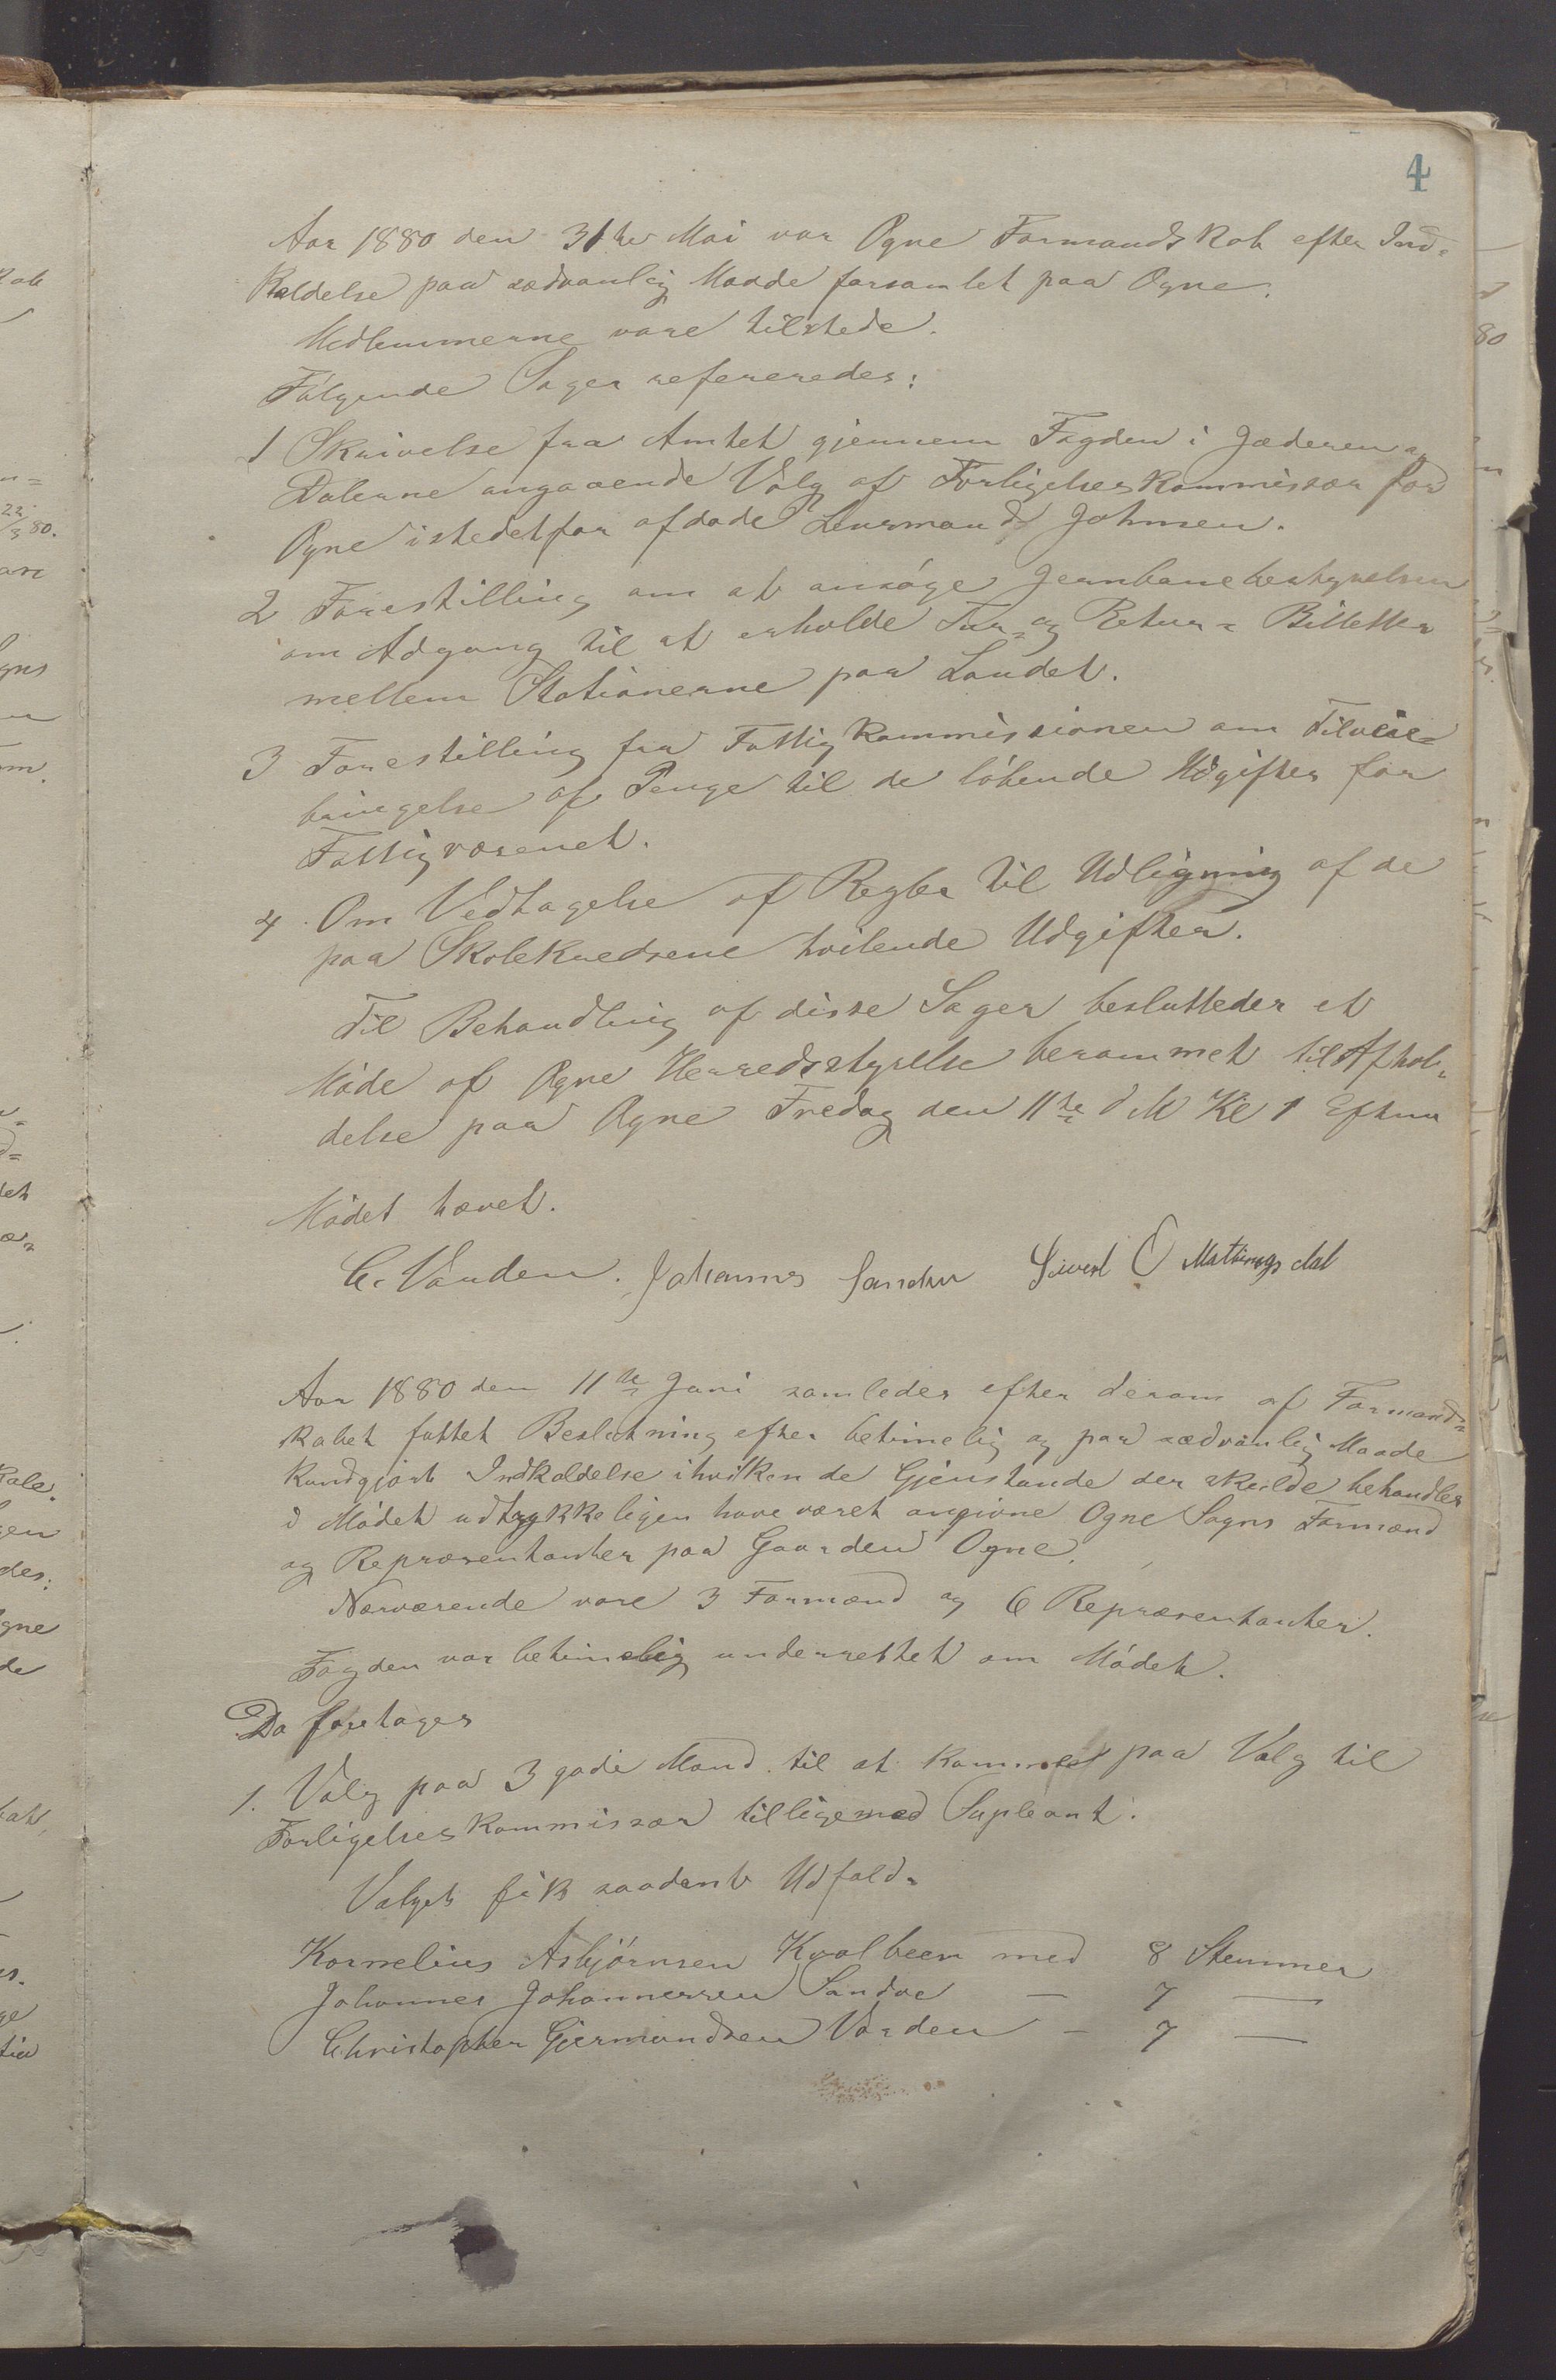 4
Aar 1880 den 31te Mai var Ogne Formandskab efter Ind-
kaldelse paa sædvanlig Maade forsamlet paa Ogne.
Medlemmerne vare tilstede.
Følgende Sager refereredes:
1 Skrivelse fra Amtet gjennem Fogden i Jæderen og
Dalerne angaaende Valg af Forligelseskommissær for
Ogne istedetfor afdøde Lensmand Johnsen.
2 Forestilling om at ansøge Jernbanebestyrelsen
om Adgang til at erholde Tur- og Retur- Billetter
mellem Stationerne paa Landet.
3 Forestilling fra Fattigkommissionen om Tilveie-
bringelse af Penge til de løbende Udgifter for
Fattigvæsenet.
4 Om Vedtagelse af Regler til Udligning af de
paa Skolekredsene hvilende Udgifter.
Til Behandling af disse Sager besluttedes et
Møde af Ogne Herredsstyrelse berammet til Afhol-
delse paa Ogne Fredag den 11te d M Kl 1 Efterm
Mødet hævet.
C. Varden. Johannes Sandve Sivert O Matningsdal
Aar 1880 den 11te Juni samledes efter derom af Formand-
skabet fattet Beslutning efter betimelig og paa sædvanlig Maade
kundgjort Indkaldelse ihvilken de Gjenstande der skulde behandles
i Mødet udtrykkeligen have været angivne Ogne Sogns Formænd
og Repræsentanter paa Gaarden Ogne.
Nærværende vare 3 Formænd og 6 Repræsentanter.
Fogden var betimelig underrettet om Mødet.
Da foretages
1. Valg paa 3 gode Mænd til at komme paa Valg til
Forligelseskommissær tilligemed Supleant.
Valget fik saadant Udfald-
Kornelius Asbjørnsen Kvalbeen med 8 Stemmer
Johannes Johannessen Sandve — 7 —
Christopher Gjermundsen Varden — 7 —